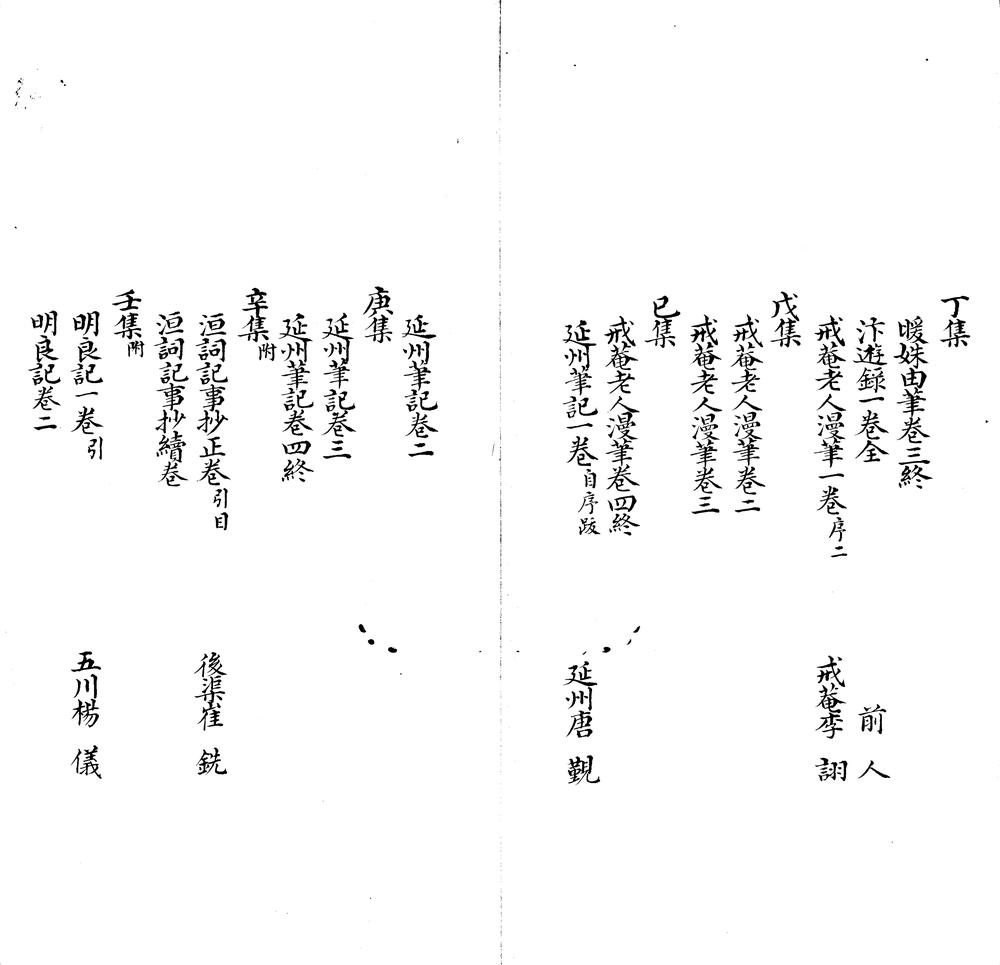 丁集
暖姝由筆卷三終
汴遊錄一卷全 前人
戒菴老人漫筆一卷序二 戒菴李詡
戊集
戒菴老人漫筆卷二
戒菴老人漫筆卷三
巳集
戒菴老人漫筆卷四終
延州筆記一卷自序跋 延州唐覲
延州筆記卷二
庚集
延州筆記卷三
延州筆記卷四終
辛集附
洹詞記事抄正卷引目 後渠崔銑
洹詞記事抄續卷
壬集附
明良記一卷引 五川楊儀
明良記卷二